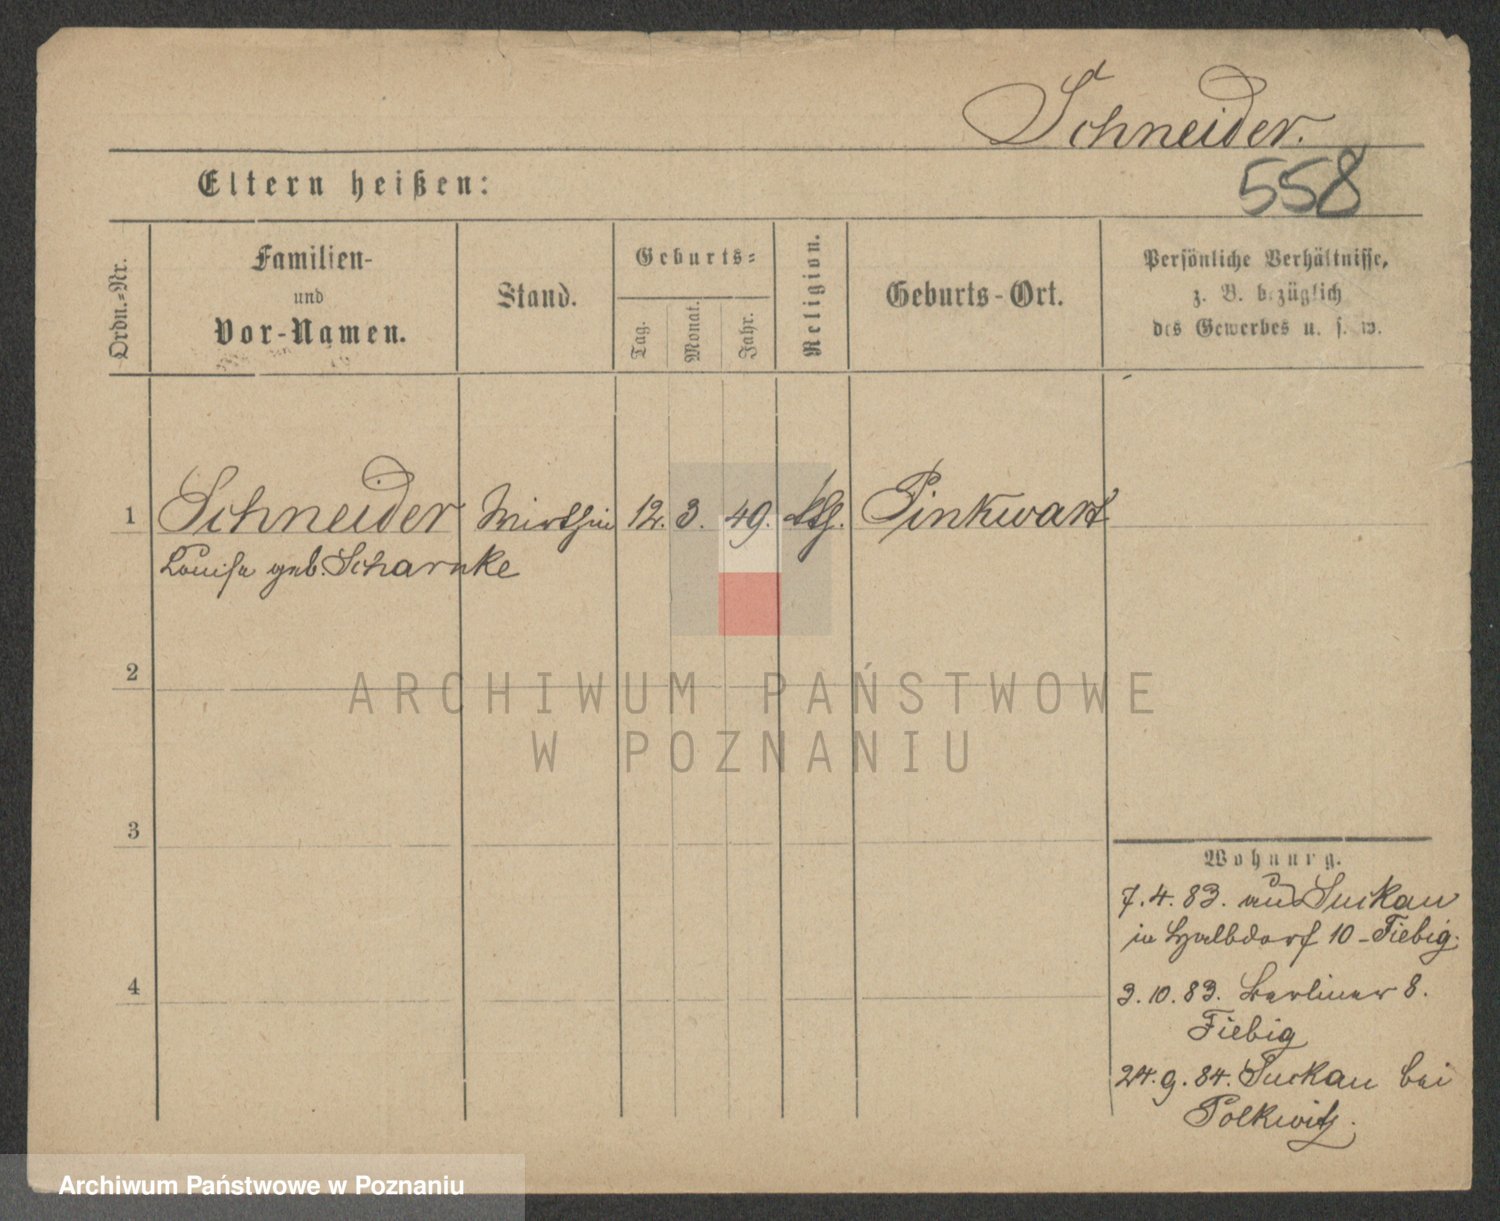 Schneider.
558
Eltern heißen:
Ordn.-Nr.
Familien-
und
Vor-Namen.
Stand.
Geburts-
Tag.
Monat.
Jahr.
Religion.
Geburts-Ort.
Persönliche Verhältnisse,
z. B. bezüglich
des Gewerbes u. s. w.
1 Schneider Wirthin 12. 3. 49. kth. Pinkwart
Louise geb. Scharnke
2
ARCHIWUM PAŃSTWOWE
W POZNANIU
3
4
Wohnung.
7. 4. 83. aus Suckau
in Halbdorf 10 - Fiebig.
3. 10. 83. Berliner 8.
Fiebig
24. 9. 84. Suckau bei
Polkwitz.
Archiwum Państwowe w Poznaniu